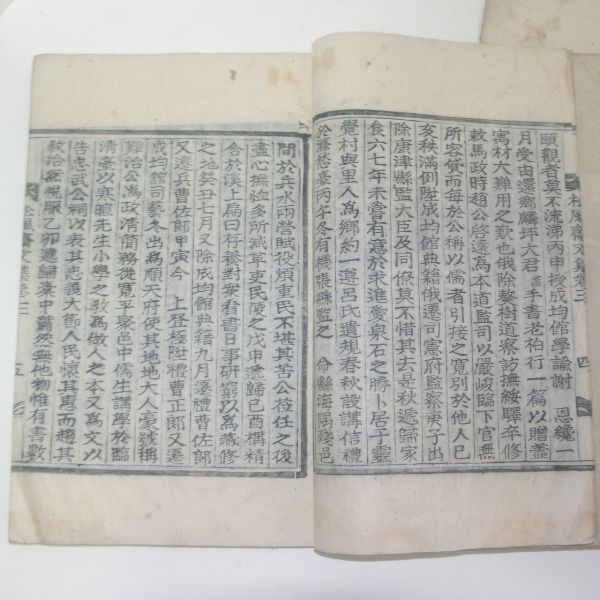 頤觀者莫不流涕丙申授成均館學諭謝 恩纔一
月受由還鄉麟坪大君 手書老柏行一篇以贈盖
寓材大難用之歎也俄除蔾樹道察訪撫綏驛卒修
敕馬政時趙公啓遠爲本道監司以嚴峻臨下官無
所容貸而每於公稱以儒者引接之寬別於他人已
亥秩滿例陞成均館典籍俄遷司憲府監察庚子出
除唐津縣監大臣及同僚莫不惜其去是秋遞歸家
食六七年未嘗有意於求進愛泉石之勝卜居于靈
覺村與里人爲鄉約一遵呂氏遺規春秋設講信禮
於滌愁臺丙午冬有機張縣監之 命縣海隅殘邑
松風齋文集卷三
四
間於兵水兩營賦役煩重民不堪其苦公莅任之後
盡心撫恤多所减革吏民陵之戊申遞歸己酉構精
舍於溪上扁曰行裕對案看書日事研窮以爲藏修
之地癸丑七月又除成均館典籍九月遷禮曹佐郞
又遷兵曹佐郞甲寅今 上登極陞禮曹正郞又遷
成均館司藝冬出爲順天府使其地地大人豪號稱
難治公爲政淸簡務從寬平聚邑中儒生講學於臨
淸臺以寒暄先生小學之敎爲做人之本又爲文以
告忠武公祠以表其忠義大節人民懷其惠而趨其
敎治
服乙卯遞歸橐中蕭然無他物惟有書數
松風齋文集卷三
五